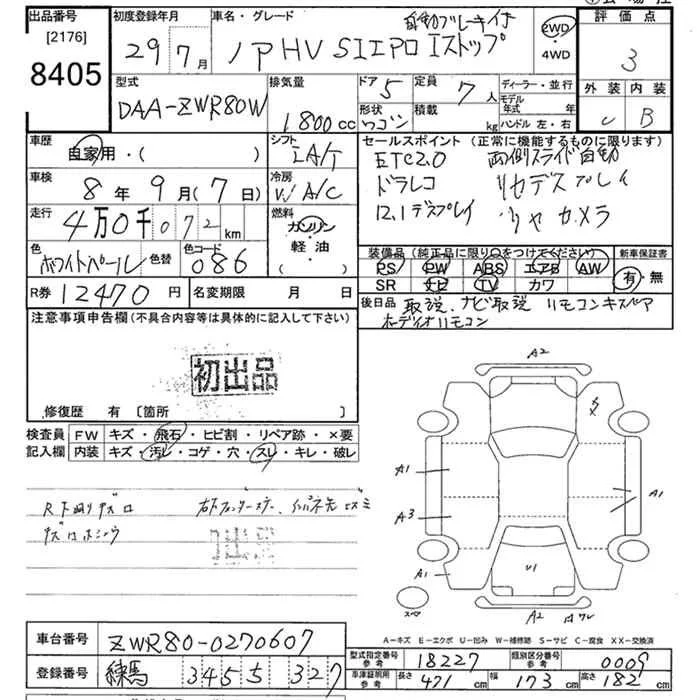 出品番号
[2176]
8405
初度登録年月
29年 7月
車名・グレード
自動ブレーキ付
ノア HV SI WxB Iストップ
2WD
・
4WD
評価点
3
型式
DAA-ZWR80W
排気量
1.800cc
ドア 5
定員 7人
形状 ワゴン
積載 kg
ディーラー・並行
モデル年式 年
ハンドル 左・右
外装 内装
B
車歴
自家用・( )
シフト
IA/T
車検
8年 9月(7日)
冷房
W A/C
走行
4万0千072km
燃料
ガソリン
軽・油
( )
色
ホワイトパール
色替
色コード
086
R券 12470円
名変期限 月 日
セールスポイント (正常に機能するものに限ります)
ETC2.0 両側スライド自動
ドラレコ リヤデスプレイ
12.1デスプレイ リヤカメラ
装備品 (純正品に限り○をつけてください)
新車保証書
PS PW ABS エアB AW
SR ナビ TV カワ
有・無
後日品 取説、ナビ取説 リモコンキスペア
オーディオリモコン
注意事項申告欄(不具合内容等は具体的に記入して下さい)
初出品
修復歴 有 [箇所 ]
検査員記入欄
FW キズ・飛石・ヒビ割・リペア跡・×要
内装 キズ・汚レ・コゲ・穴・スレ・キレ・破レ
初出品
A2
A1
A3
A1
A1
U1
A2
スペア
A-キズ E-エクボ U-凹み W-補修跡 S-サビ C-腐食 XX-交換済
車台番号 ZWR80-0270607
登録番号 練馬 3455 327
型式指定番号 参考 18227
類別区分番号 参考 0009
車庫証明用 参考 長さ 471cm 幅 173cm 高さ 182cm